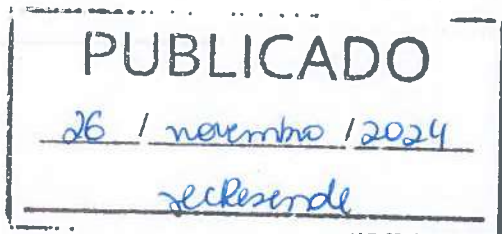 PUBLICADO
26 / novembro / 2024